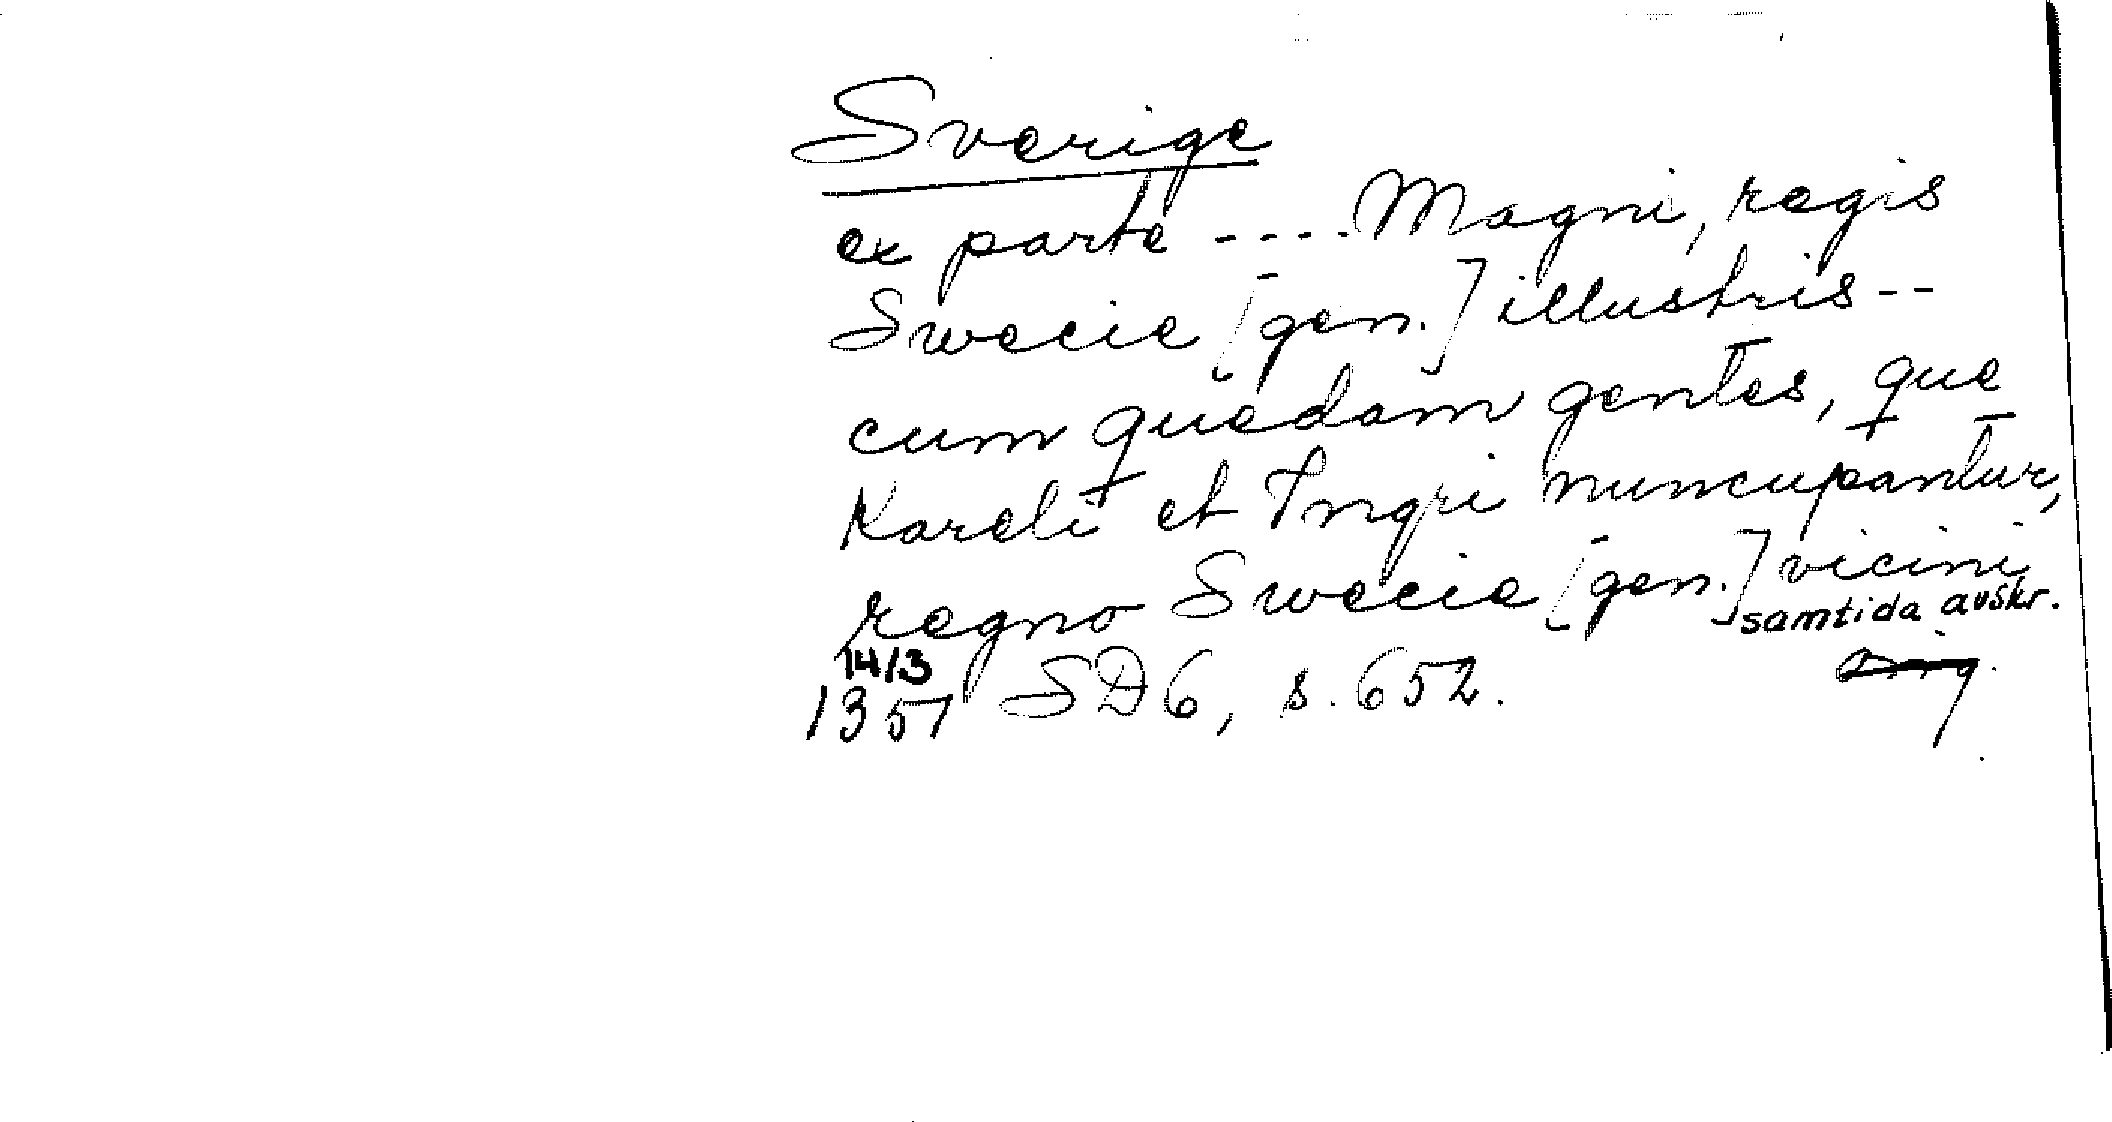 Sverige
ex parte ---- Magni, regis
Swecie [gen.] illustris --
cum quedam gentes, que
Kareli et Ingri nuncupantur,
regno Swecie [gen.] vicini
samtida avskr.
14/3
1351 SD6, s. 652.